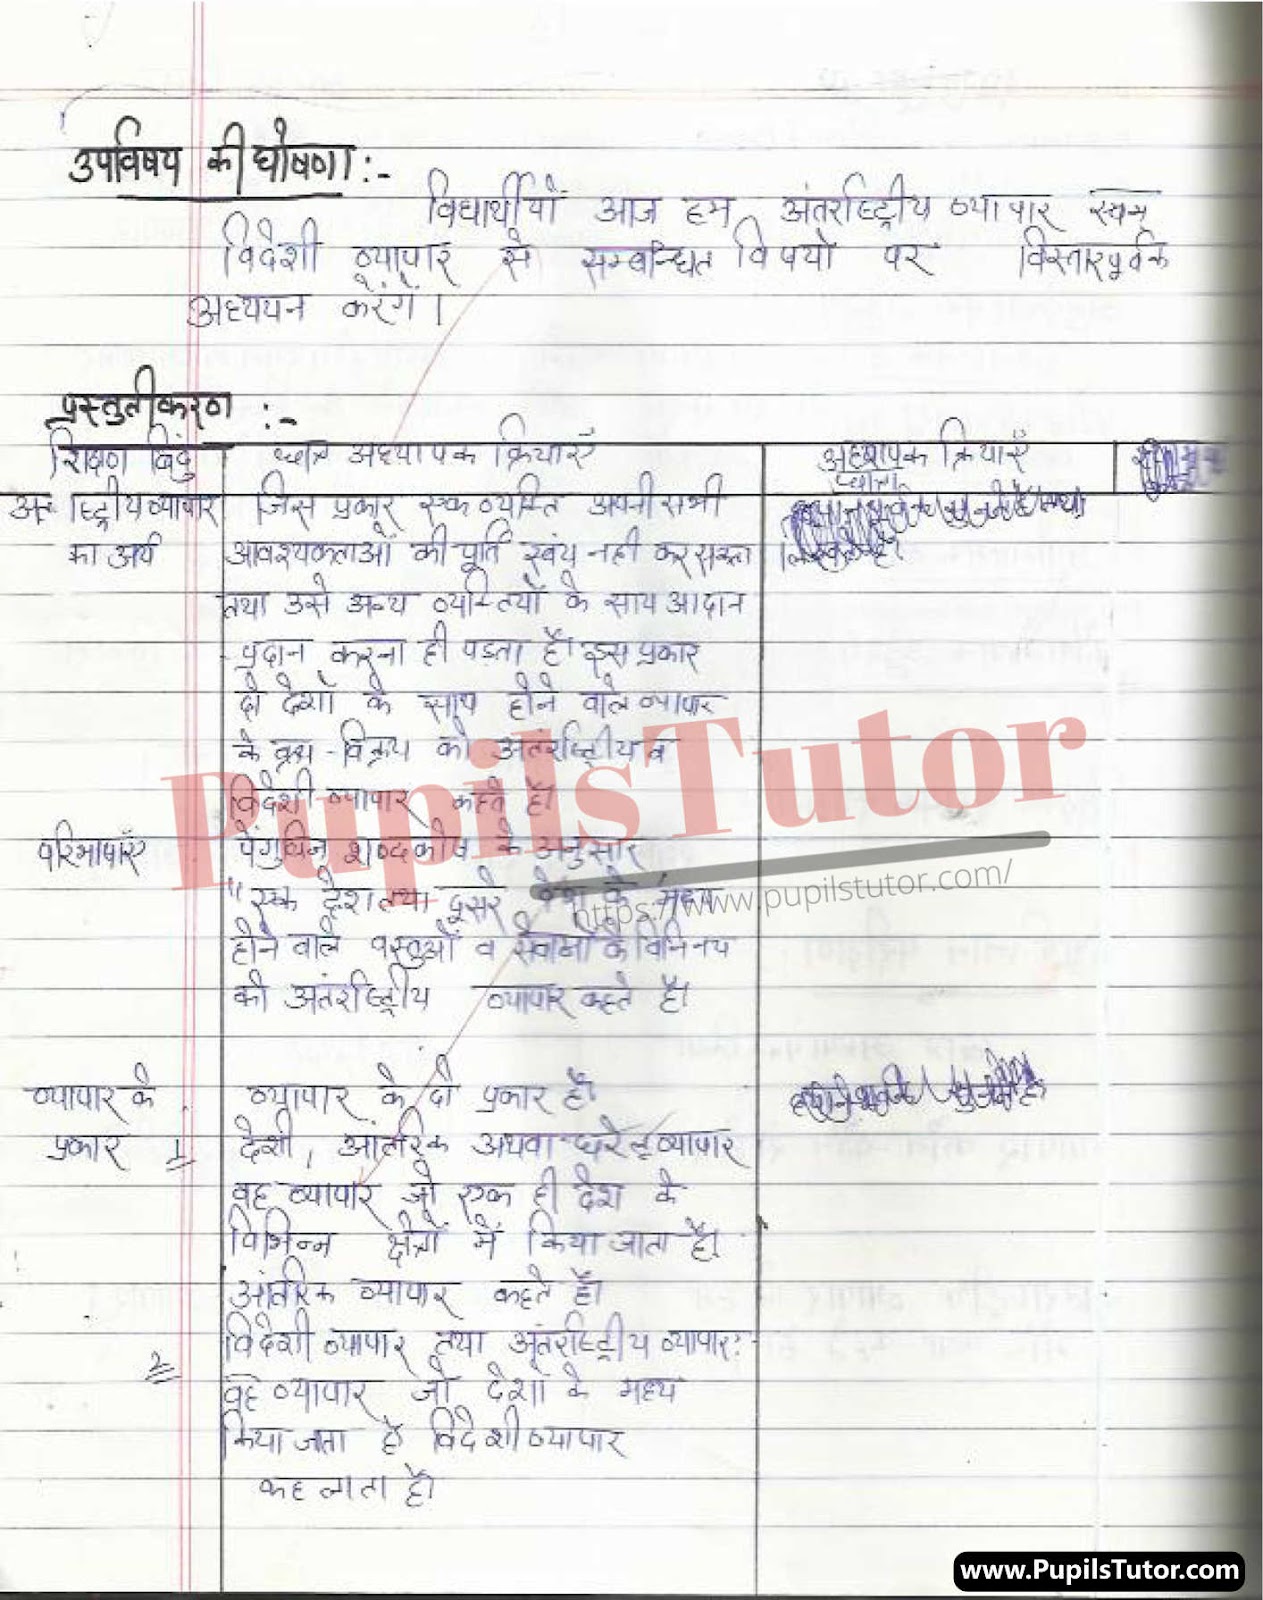 उपविषय की घोषणा :-
विद्यार्थीयों आज हम अंतर्राष्ट्रीय व्यापार एवम्
विदेशी व्यापार से सम्बन्धित विषयों पर विस्तारपूर्वक
अध्ययन करेंगे।
प्रस्तुतीकरण :-
शिक्षण बिंदु छात्र अध्यापक क्रियाएँ अध्यापक क्रियाएँ
छात्र
व्यापार जिस प्रकार एक व्यक्ति अपनी सभी
का अर्थ आवश्यकताओं की पूर्ति स्वंय नही कर सकता
तथा उसे अन्य व्यक्तियों के साथ आदान
प्रदान करना ही पडता है। इस प्रकार
दो देशों के साथ होने वाले व्यापार
के क्रय-विक्रय को अंतर्राष्ट्रीय व
विदेशी व्यापार कहते है।
परिभाषाएँ पेंगुविन शब्दकोष के अनुसार
"एक देश तथा दूसरे देश के मध्य
होने वाले वस्तुओं व सेवाओं के विनिमय
को अंतर्राष्ट्रीय व्यापार कहते है।
व्यापार के व्यापार के दो प्रकार है।
प्रकार 1 देशी, आंतरिक अथवा घरेलू व्यापार
वह व्यापार जो एक ही देश के
विभिन्न क्षेत्रों में किया जाता है।
आंतरिक व्यापार कहते है।
2 विदेशी व्यापार तथा अंतर्राष्ट्रीय व्यापार:-
वह व्यापार जो देशों के मध्य
किया जाता है विदेशी व्यापार
कहलाता है।
PupilsTutor
https://www.pupilstutor.com/
www.PupilsTutor.com